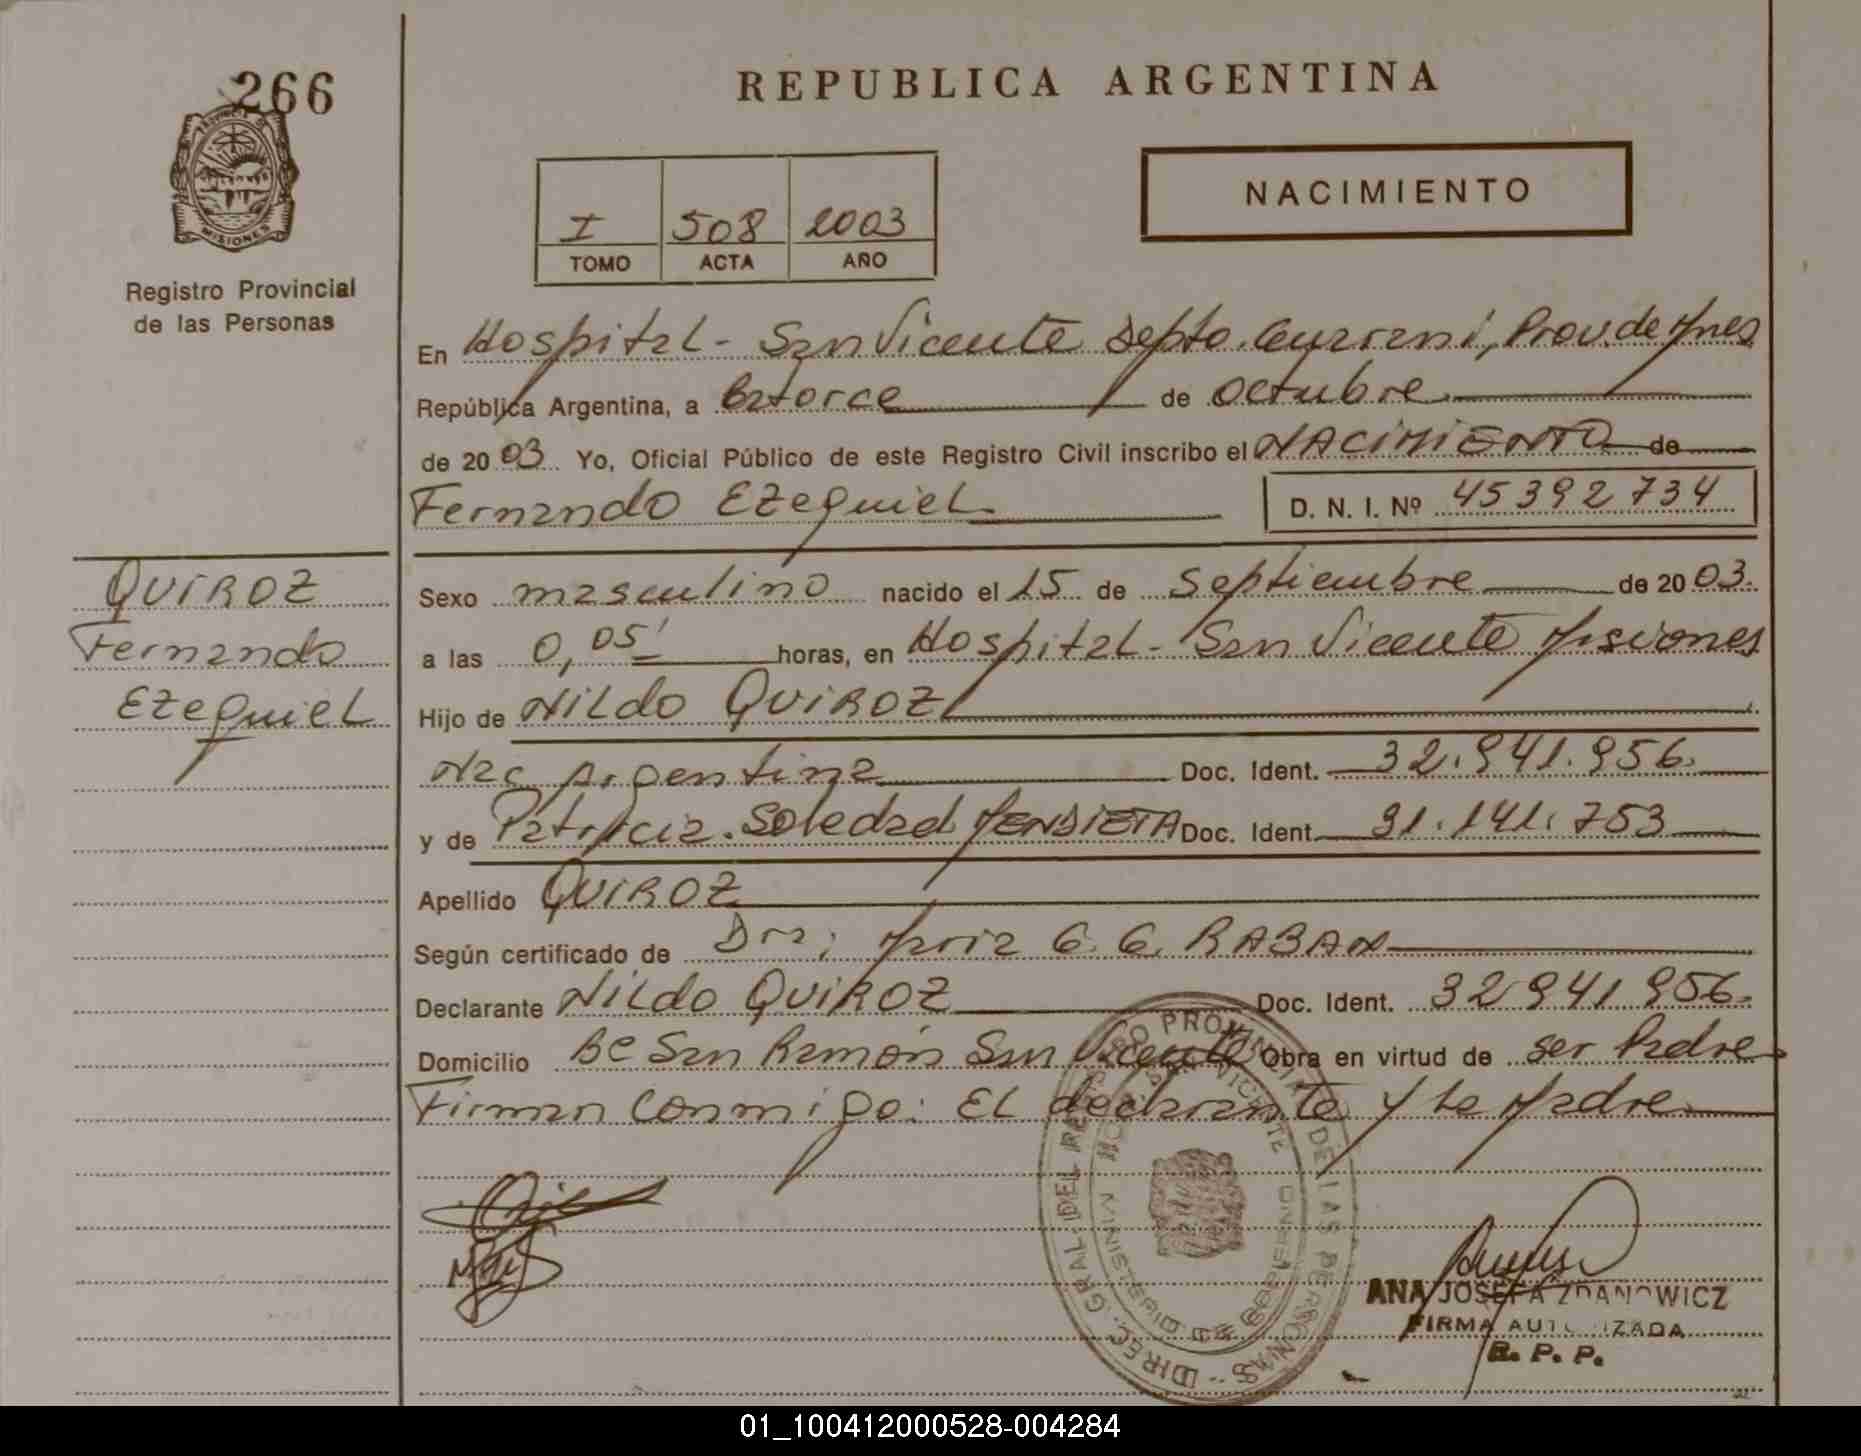 266
PROVINCIA DE
MISIONES
Registro Provincial
de las Personas
REPUBLICA ARGENTINA
NACIMIENTO
I 508 2003
TOMO ACTA AÑO
En Hospital - San Vicente Depto. Guarani, Prov. de Mnes
República Argentina, a Catorce de octubre
de 2003 Yo, Oficial Público de este Registro Civil inscribo el NACIMIENTO de
Fernando Ezequiel D. N. I. Nº 45392734
QUIROZ
Fernando
Ezequiel
Sexo masculino nacido el 15 de Septiembre de 2003.
a las 0,05' horas, en Hospital - San Vicente Misiones
Hijo de Nildo QUIROZ
Nac Argentina Doc. Ident. 32.941.956.
y de Patricia Soledad MENDIETA Doc. Ident. 31.141.753
Apellido QUIROZ
Según certificado de Dra; Maria G. G. RABAN
Declarante Nildo QUIROZ Doc. Ident. 32 941 956.
Domicilio Bº San Ramón San Vicente Obra en virtud de ser Padre
Firman Conmigo: El declarante y la Madre
DIREC. GRAL. DEL REGISTRO PROVINCIAL DE LAS PERSONAS
SAN VICENTE
MINISTERIO DE GOBIERNO
ANA JOSEFA ZDANOWICZ
FIRMA AUTORIZADA
R. P. P.
01_100412000528-004284